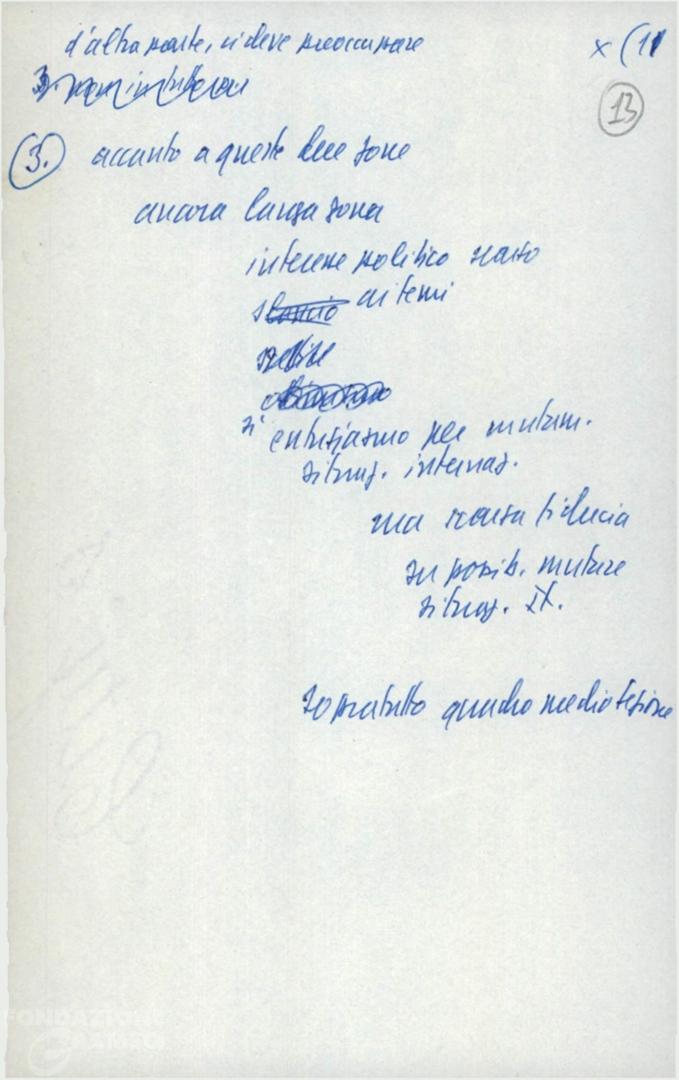 d'altra parte, ci deve preoccupare
x (11
13
3.
3. accanto a queste due zone
ancora larga zona
interesse politico scarso
slancio ai temi
si entusiasmo per mutam.
situaz. internaz.
ma scarsa fiducia
su possib. mutare
situaz. It.
sopratutto quadro medio sezione
FONDAZIONE
GRAMSCI